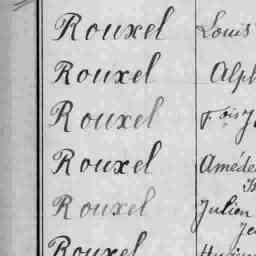 Rouxel Louis
Rouxel Alph
Rouxel F.ois J
Rouxel Améde
Rouxel Julien
Je
Rouxel